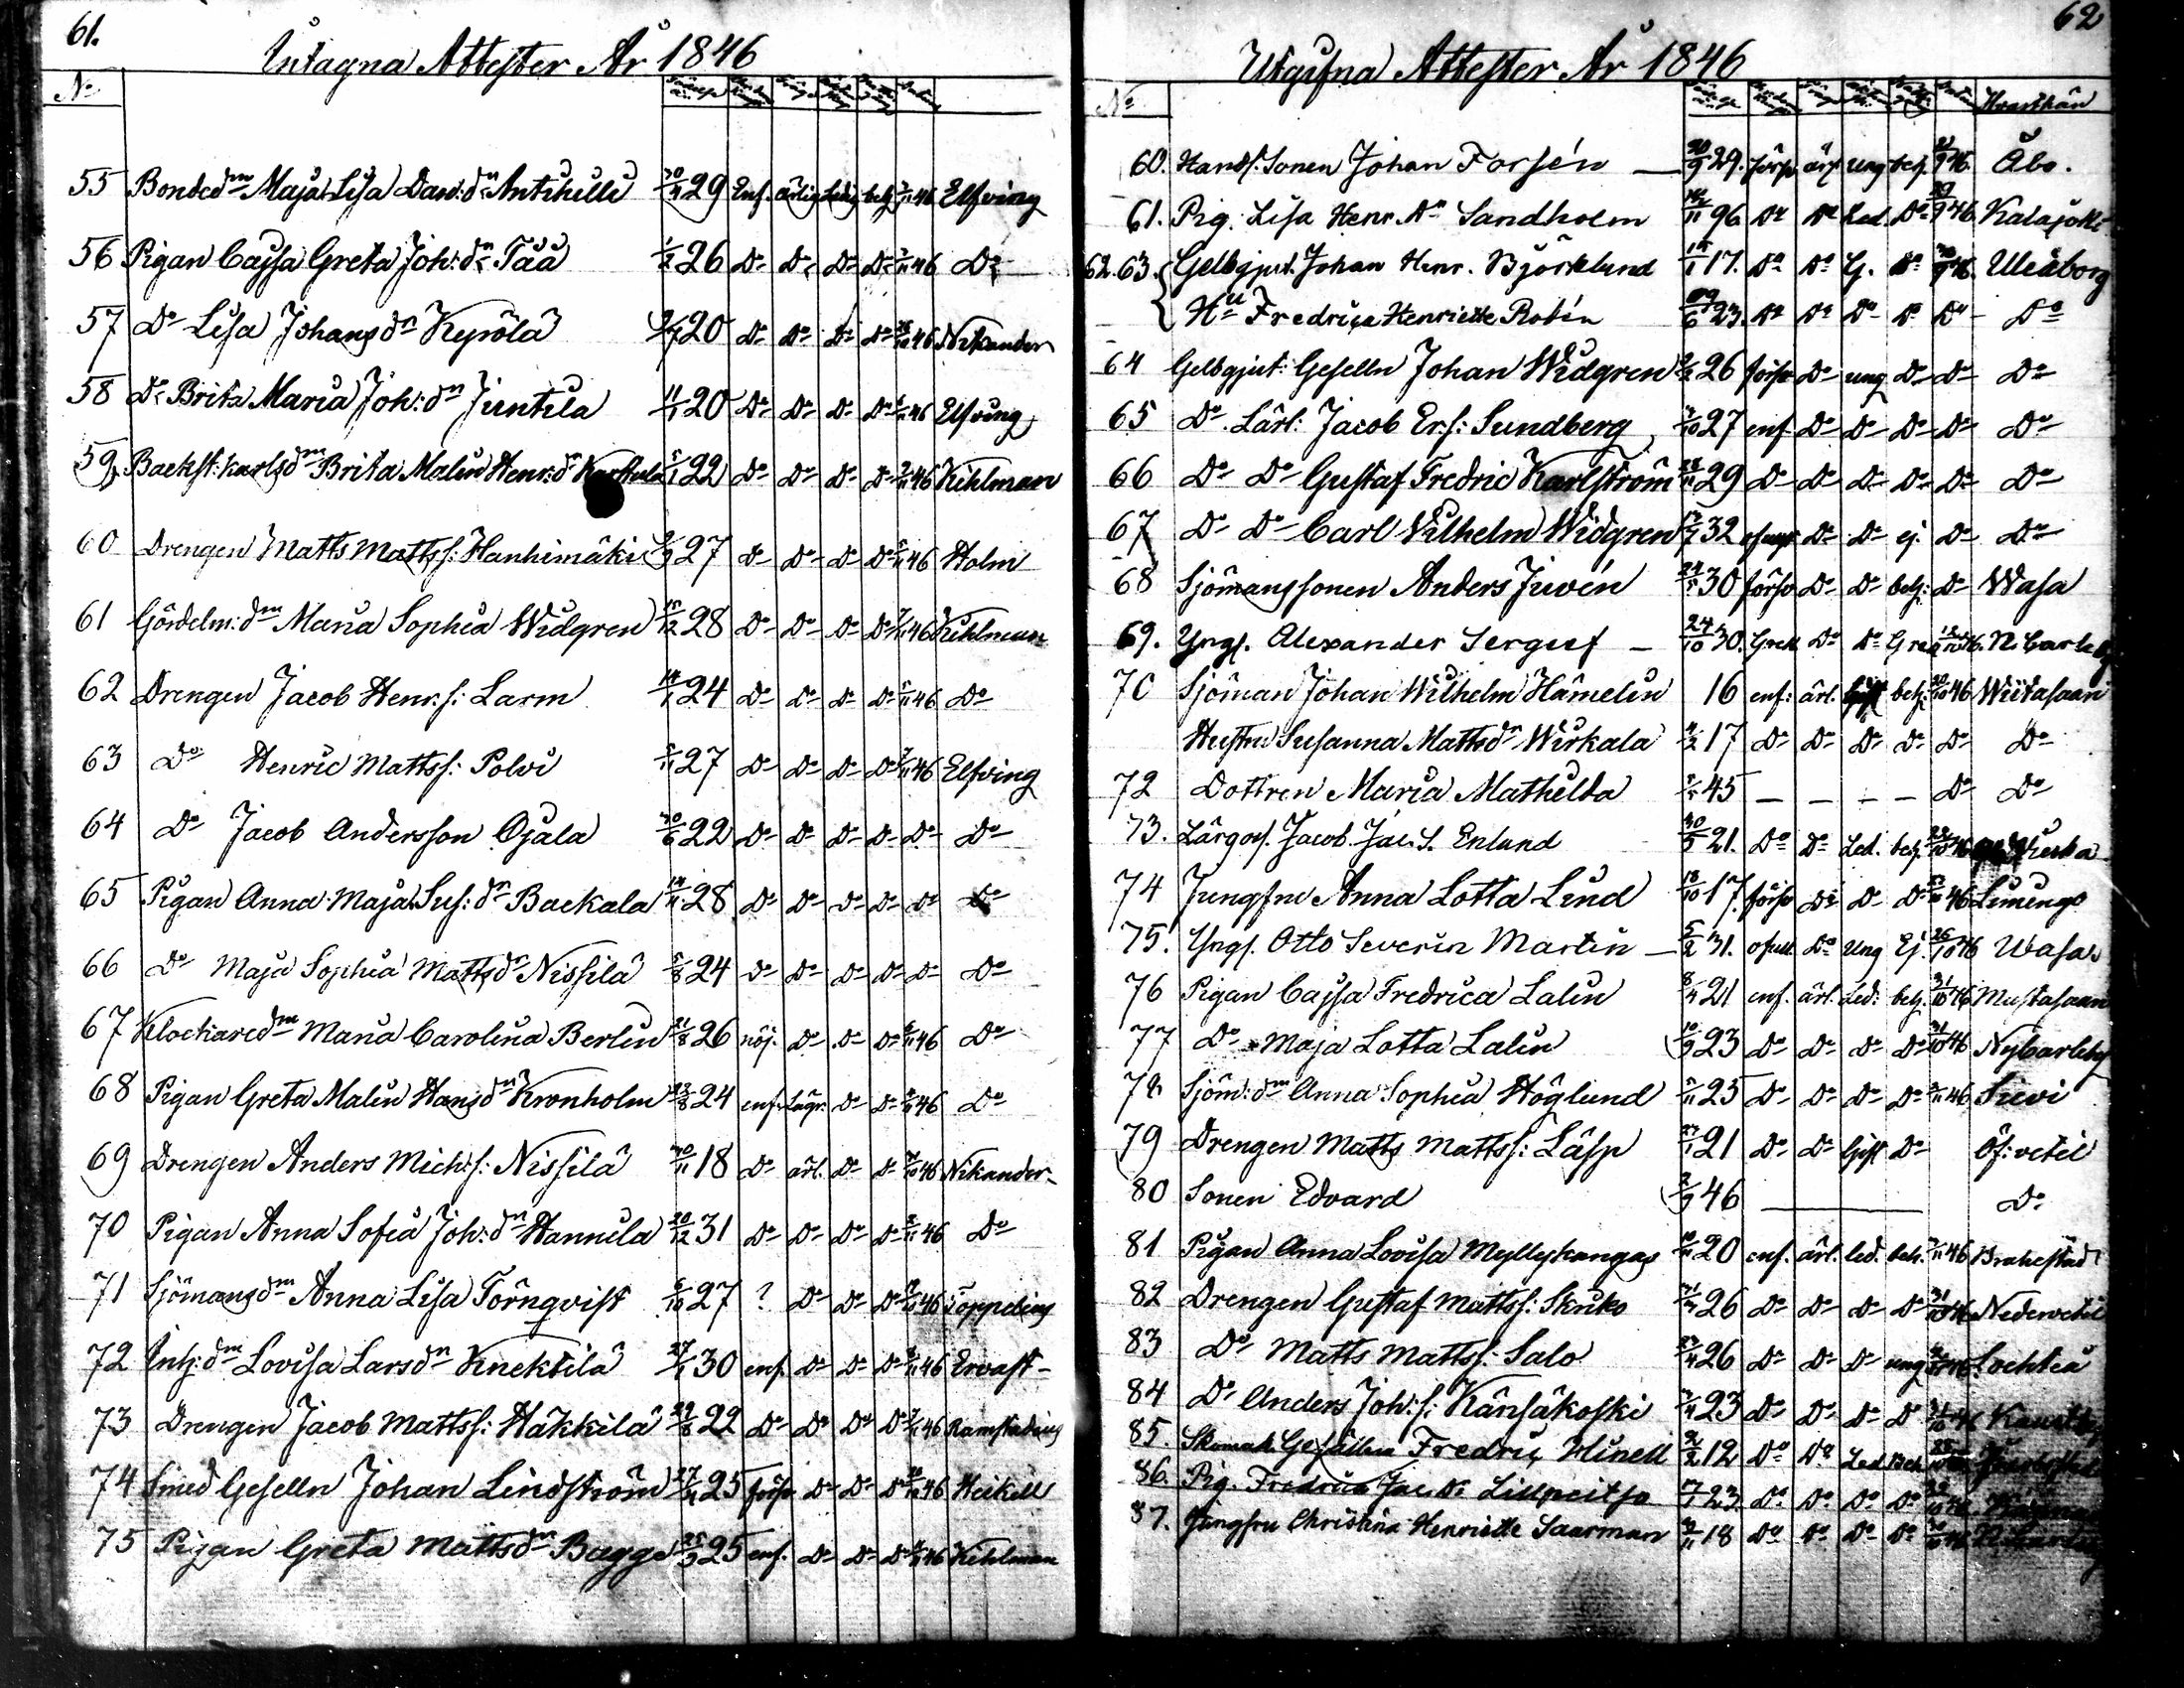 61.
Intagna Attester År 1846
No
55 Bondedm Maja Lisa Dav:dr Antihille 29 Enf. ärlig Ledig betj 46 Elfving
56 Pigan Cajsa Greta Joh:dr Tää 1/2 26 Do Do Do Do 46 Do
57 Do Lisa Johansdr Kyrölä 20 Do Do Do Do 46 Nikander
58 Do Brita Maria Joh:dr Juntila 11/1 20 Do Do Do Do 46 Elfving
59 Backst:karlsdm Brita Malin Henr:dr 22 Do Do Do Do 46 Kihlman
60 Drengen Matts Mattss: Hanhimäki 27 Do Do Do Do 46 Holm
61 Gördelm:dm Maria Sophia Widgren 28 Do Do Do Do 46 Kihlman
62 Drengen Jacob Henr.s: Larm 24 Do Do Do Do 46 Do
63 Do Henric Mattss: Polvi 27 Do Do Do Do 46 Elfving
64 Do Jacob Andersson Ojala 30/6 22 Do Do Do Do Do Do
65 Pigan Anna Maja Sus:dr Backala 28 Do Do Do Do Do Do
66 Do Maja Sophia Mattsdr Nissilä 24 Do Do Do Do Do Do
67 Klockaredm Maria Carolina Berlin 21/8 26 nöj. Do Do Do 46 Do
68 Pigan Greta Malin Hansdr Kronholm 23/8 24 enf. Lägr. Do Do 46 Do
69 Drengen Anders Mich:s: Nissilä 30/11 18 Do ärl. Do Do 46 Nikander
70 Pigan Anna Sofia Joh:dr Hannila 20/12 31 Do Do Do Do 46 Do
71 Sjömansdm Anna Lisa Törnqvist 6/10 27 ? Do Do Do 46 Toppelius
72 Inh:dm Lovisa Larsdr Knektilä 27/1 30 enf. Do Do Do 46 Ervast
73 Drengen Jacob Mattss: Hakkila 29/8 22 Do Do Do Do 46 Ramstadius
74 Smed Geselln Johan Lindström 25 försv Do Do Do 46 Heikell
75 Pigan Greta Mattsdr Bagge 25 enf. Do Do Do 46 Kihlman
62
Utgifna Attester År 1846
No Hvarthän
60. Handl. Sonen Johan Forsén 29. försv ärl. Ung betj. 46. Åbo.
61. Pig. Lisa Henr. Dr Sandholm 96 Do Do Led. Do 46 Kalajoki
62.63. Gelbgjut. Johan Henr. Björklund 17. Do Do G. Do 46. Uleåborg
Hu Fredrica Henriette Robén 23. Do Do Do Do Do Do
64 Gelbgjut: Geselln Johan Widgren 26 försv Do ung Do Do Do
65 Do Lärl: Jacob Er.s: Sundberg 27 enf. Do Do Do Do Do
66 Do Do Gustaf Fredric Karlström 29 Do Do Do Do Do Do
67 Do Do Carl Wilhelm Widgren 32 Do Do ej Do Do
68 Sjömanssonen Anders Juvén 30 försv Do Do betj: Do Wasa
69. Yngl. Alexander Sergeef 24/10 30. Grek Do Do Gre 46. N. Carleby
70 Sjöman Johan Wilhelm Hämelin 16 enf: ärl. betj. 46 Wiitasaari
Hustru Susanna Mattsdr Wirkala 17 Do Do Do Do Do Do
72 Dottren Maria Mathilda 45 — — — — Do Do
73. Lärgos. Jacob Jac. S. Enlund 30/5 21. Do Do Led. betj.
74 Jungfru Anna Lotta Lind 18/10 17. försv Do Do Do 46 Limingo
75. Yngl. Otto Severin Martin 5/2 31. ofull Do Ung Ej. 46 Wasa
76 Pigan Cajsa Fredrica Lalin 8/4 21 enf. ärl. Led: betj. 31/10 46 Mustasaari
77 Do Maja Lotta Lalin 10/9 23 Do Do Do Do 31/10 46 Nycarleby
78 Sjöm:dm Anna Sophia Höglund 25 Do Do Do Do 46 Sievi
79 Drengen Matts Mattss: Läsp 21 Do Do Gift Do Öf:vetil
80 Sonen Edvard 46 Do
81 Pigan Anna Lovisa Myllykangas 20 enf. ärl. led. betj. 46 Brahestad
82 Drengen Gustaf Mattss: Skriko 26 Do Do Do Do 31/10 46 Nedervetil
83 Do Matts Mattss: Salo 26 Do Do Do ung Lochteå
84 Do Anders Joh:s: Känsäkoski 23 Do Do Do Do Kaustby
85. Skomak Gesällen Fredric Hinell 12 Do Do Led Bet.
86. Pig. Fredrica Jac. Dr 23. Do Do Do Do
87. Jungfru Christina Henriette Saarman 18 Do Do Do Do